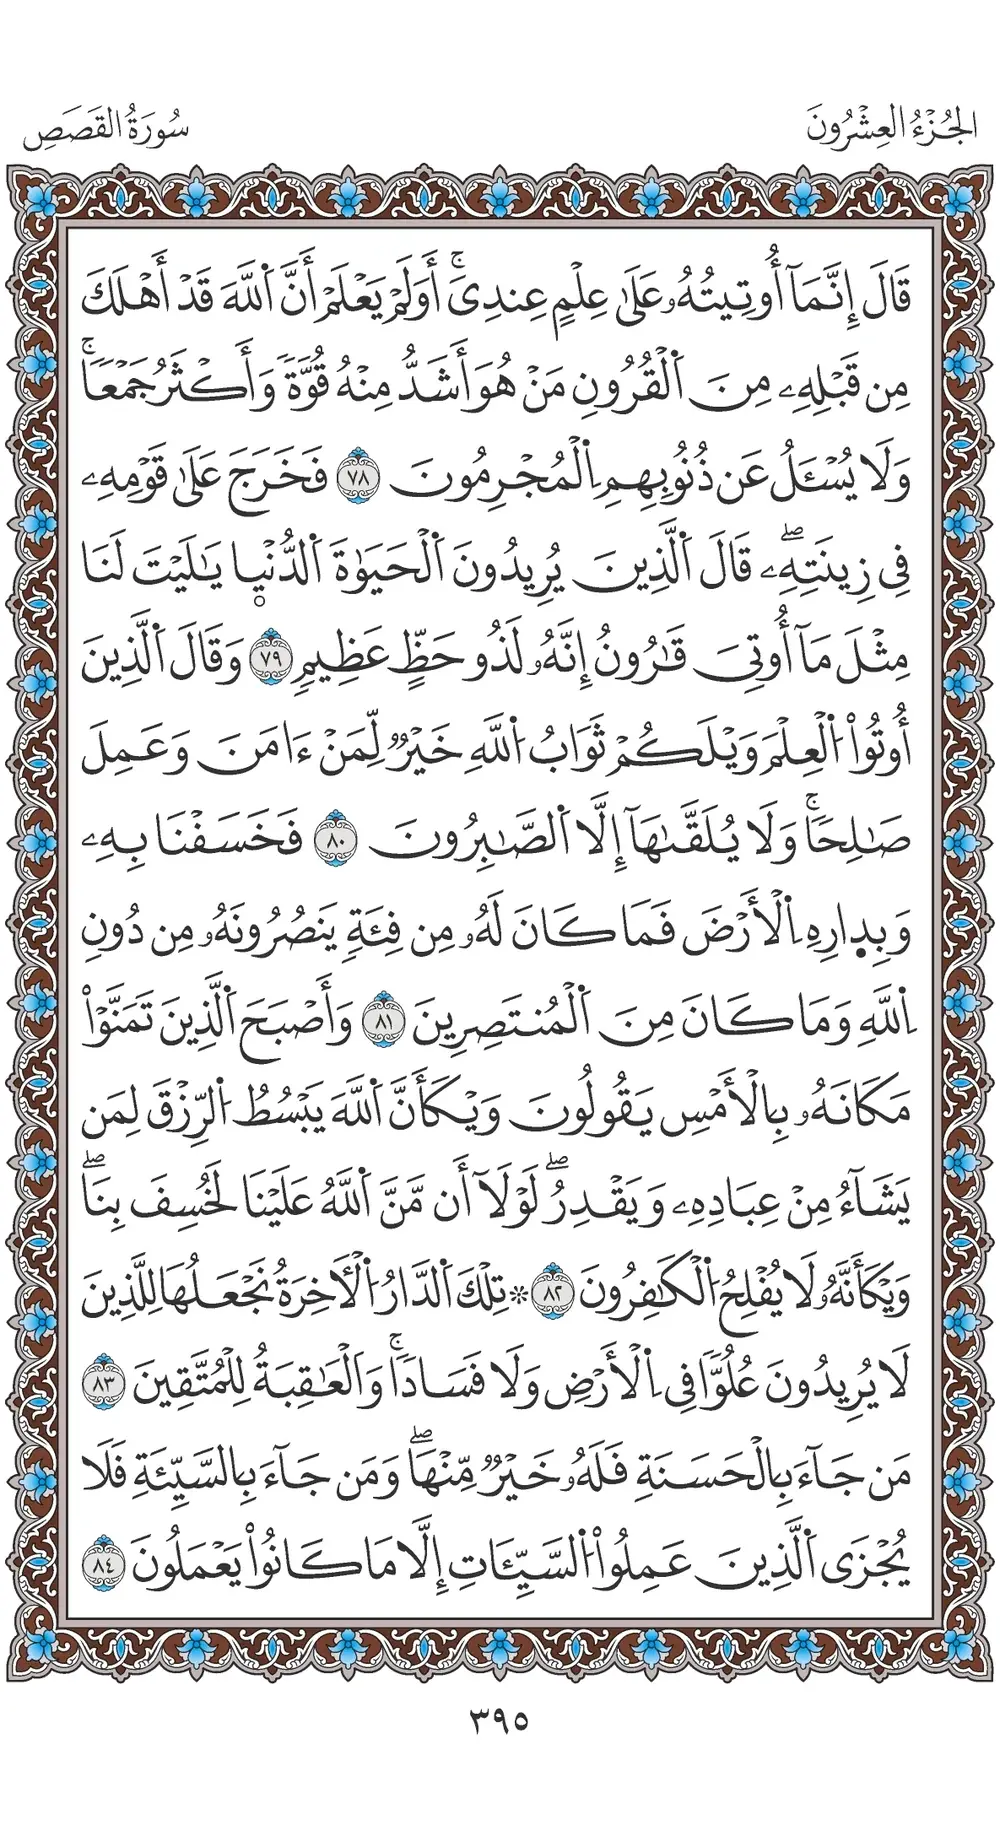 الجُزْءُ العِشْرُونَ
سُورَةُ القَصَصِ
قَالَ إِنَّمَآ أُوتِيتُهُۥ عَلَىٰ عِلْمٍ عِندِيَۚ أَوَلَمْ يَعْلَمْ أَنَّ اَ۬للَّهَ قَدْ أَهْلَكَ
مِن قَبْلِهِۦ مِنَ اَ۬لْقُرُونِ مَنْ هُوَ أَشَدُّ مِنْهُ قُوَّةٗ وَأَكْثَرُ جَمْعٗاۚ
وَلَا يُسْـَٔلُ عَن ذُنُوبِهِمِ اِ۬لْمُجْرِمُونَ ٧٨ فَخَرَجَ عَلَىٰ قَوْمِهِۦ
فِي زِينَتِهِۦۖ قَالَ اَ۬لَّذِينَ يُرِيدُونَ اَ۬لْحَيَوٰةَ اَ۬لدُّنْيٜا يَٰلَيْتَ لَنَا
مِثْلَ مَآ أُوتِيَ قَٰرُونُ إِنَّهُۥ لَذُو حَظٍّ عَظِيمٖ ٧٩ وَقَالَ اَ۬لَّذِينَ
أُوتُواْ اُ۬لْعِلْمَ وَيْلَكُمْ ثَوَابُ اُ۬للَّهِ خَيْرٞ لِّمَنْ ءَامَنَ وَعَمِلَ
صَٰلِحٗاۚ وَلَا يُلَقَّىٰهَآ إِلَّا اَ۬لصَّٰبِرُونَ ٨٠ فَخَسَفْنَا بِهِۦ
وَبِد۪ارِهِ اِ۬لْأَرْضَ فَمَا كَانَ لَهُۥ مِن فِئَةٖ يَنصُرُونَهُۥ مِن دُونِ
اِ۬للَّهِ وَمَا كَانَ مِنَ اَ۬لْمُنتَصِرِينَ ٨١ وَأَصْبَحَ اَ۬لَّذِينَ تَمَنَّوْاْ
مَكَانَهُۥ بِالْأَمْسِ يَقُولُونَ وَيْكَأَنَّ اَ۬للَّهَ يَبْسُطُ اُ۬لرِّزْقَ لِمَن
يَشَآءُ مِنْ عِبَادِهِۦ وَيَقْدِرُۖ لَوْلَآ أَن مَّنَّ اَ۬للَّهُ عَلَيْنَا لَخُسِفَ بِنَاۖ
وَيْكَأَنَّهُۥ لَا يُفْلِحُ اُ۬لْكَٰفِرُونَ ٨٢ ۞ تِلْكَ اَ۬لدَّارُ اُ۬لْأٓخِرَةُ نَجْعَلُهَا لِلَّذِينَ
لَا يُرِيدُونَ عُلُوّٗا فِي اِ۬لْأَرْضِ وَلَا فَسَادٗاۚ وَالْعَٰقِبَةُ لِلْمُتَّقِينَ ٨٣
مَن جَآءَ بِالْحَسَنَةِ فَلَهُۥ خَيْرٞ مِّنْهَاۖ وَمَن جَآءَ بِالسَّيِّئَةِ فَلَا
يُجْزَى اَ۬لَّذِينَ عَمِلُواْ اُ۬لسَّيِّـَٔاتِ إِلَّا مَا كَانُواْ يَعْمَلُونَ ٨٤
٣٩٥